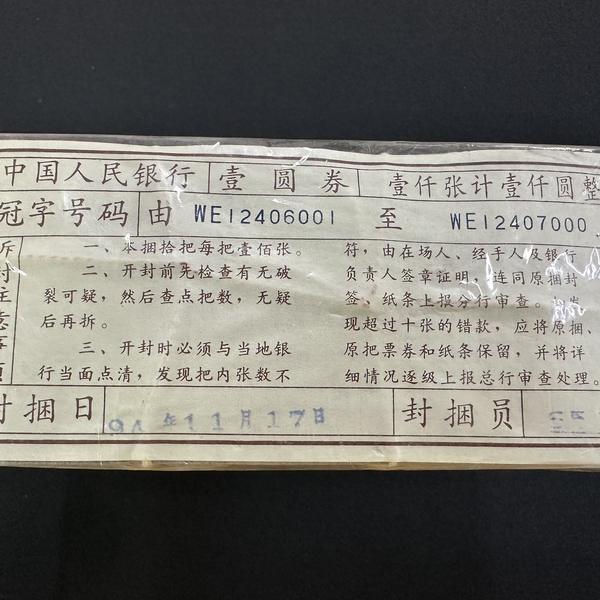 中国人民银行 壹圆券 壹仟张计壹仟圆整
冠字号码 由 WE12406001 至 WE12407000
拆封注意事项
一、本捆拾把每把壹佰张。
二、开封前先检查有无破
裂可疑，然后查点把数，无疑
后再拆。
三、开封时必须与当地银
行当面点清，发现把内张数不
符，由在场人、经手人及银行
负责人签章证明，连同原捆封
签、纸条上报分行审查。如发
现超过十张的错款，应将原捆、
原把票券和纸条保留，并将详
细情况逐级上报总行审查处理。
封捆日 94年11月17日 封捆员